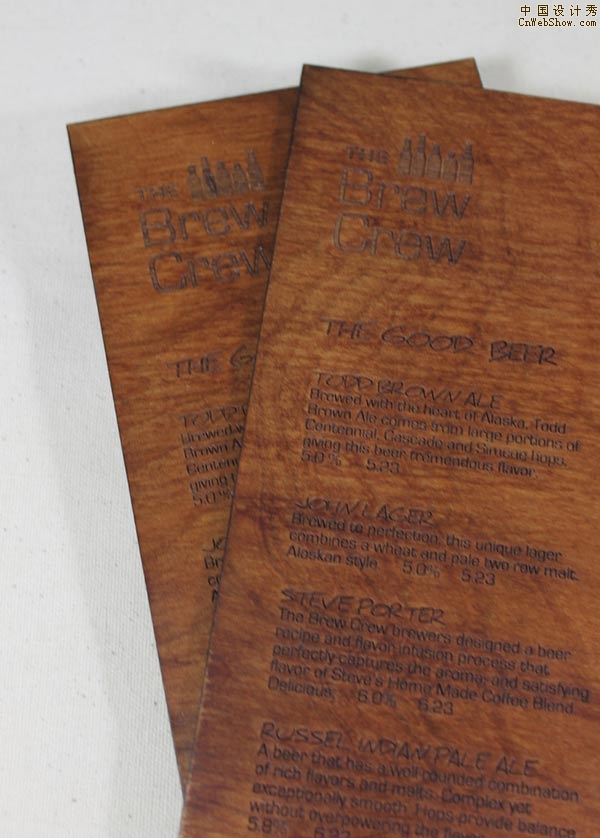 中国设计秀
CnWebShow.Com
THE
Brew
Crew
THE GOOD BEER
TODD BROWN ALE
Brewed with the heart of Alaska, Todd
Brown Ale comes from large portions of
Centennial, Cascade and Simcoe hops,
giving this beer tremendous flavor.
5.0% 5.23
JOHN LAGER
Brewed to perfection, this unique lager
combines a wheat and pale two row malt.
Alaskan style. 5.0% 5.23
STEVE PORTER
The Brew Crew brewers designed a beer
recipe and flavor infusion process that
perfectly captures the aroma, and satisfying
flavor of Steve's Home Made Coffee Blend.
Delicious. 6.0% 6.23
RUSSEL INDIAN PALE ALE
A beer that has a well rounded combination
of rich flavors and malts. Complex yet
exceptionally smooth. Hops provide balance
without overpowering the flavor
5.8% 5.23
THE
Brew
Crew
THE G
TODD
Brewed w
Brown Al
Centenn
giving t
5.0%
JO
Br
c
A